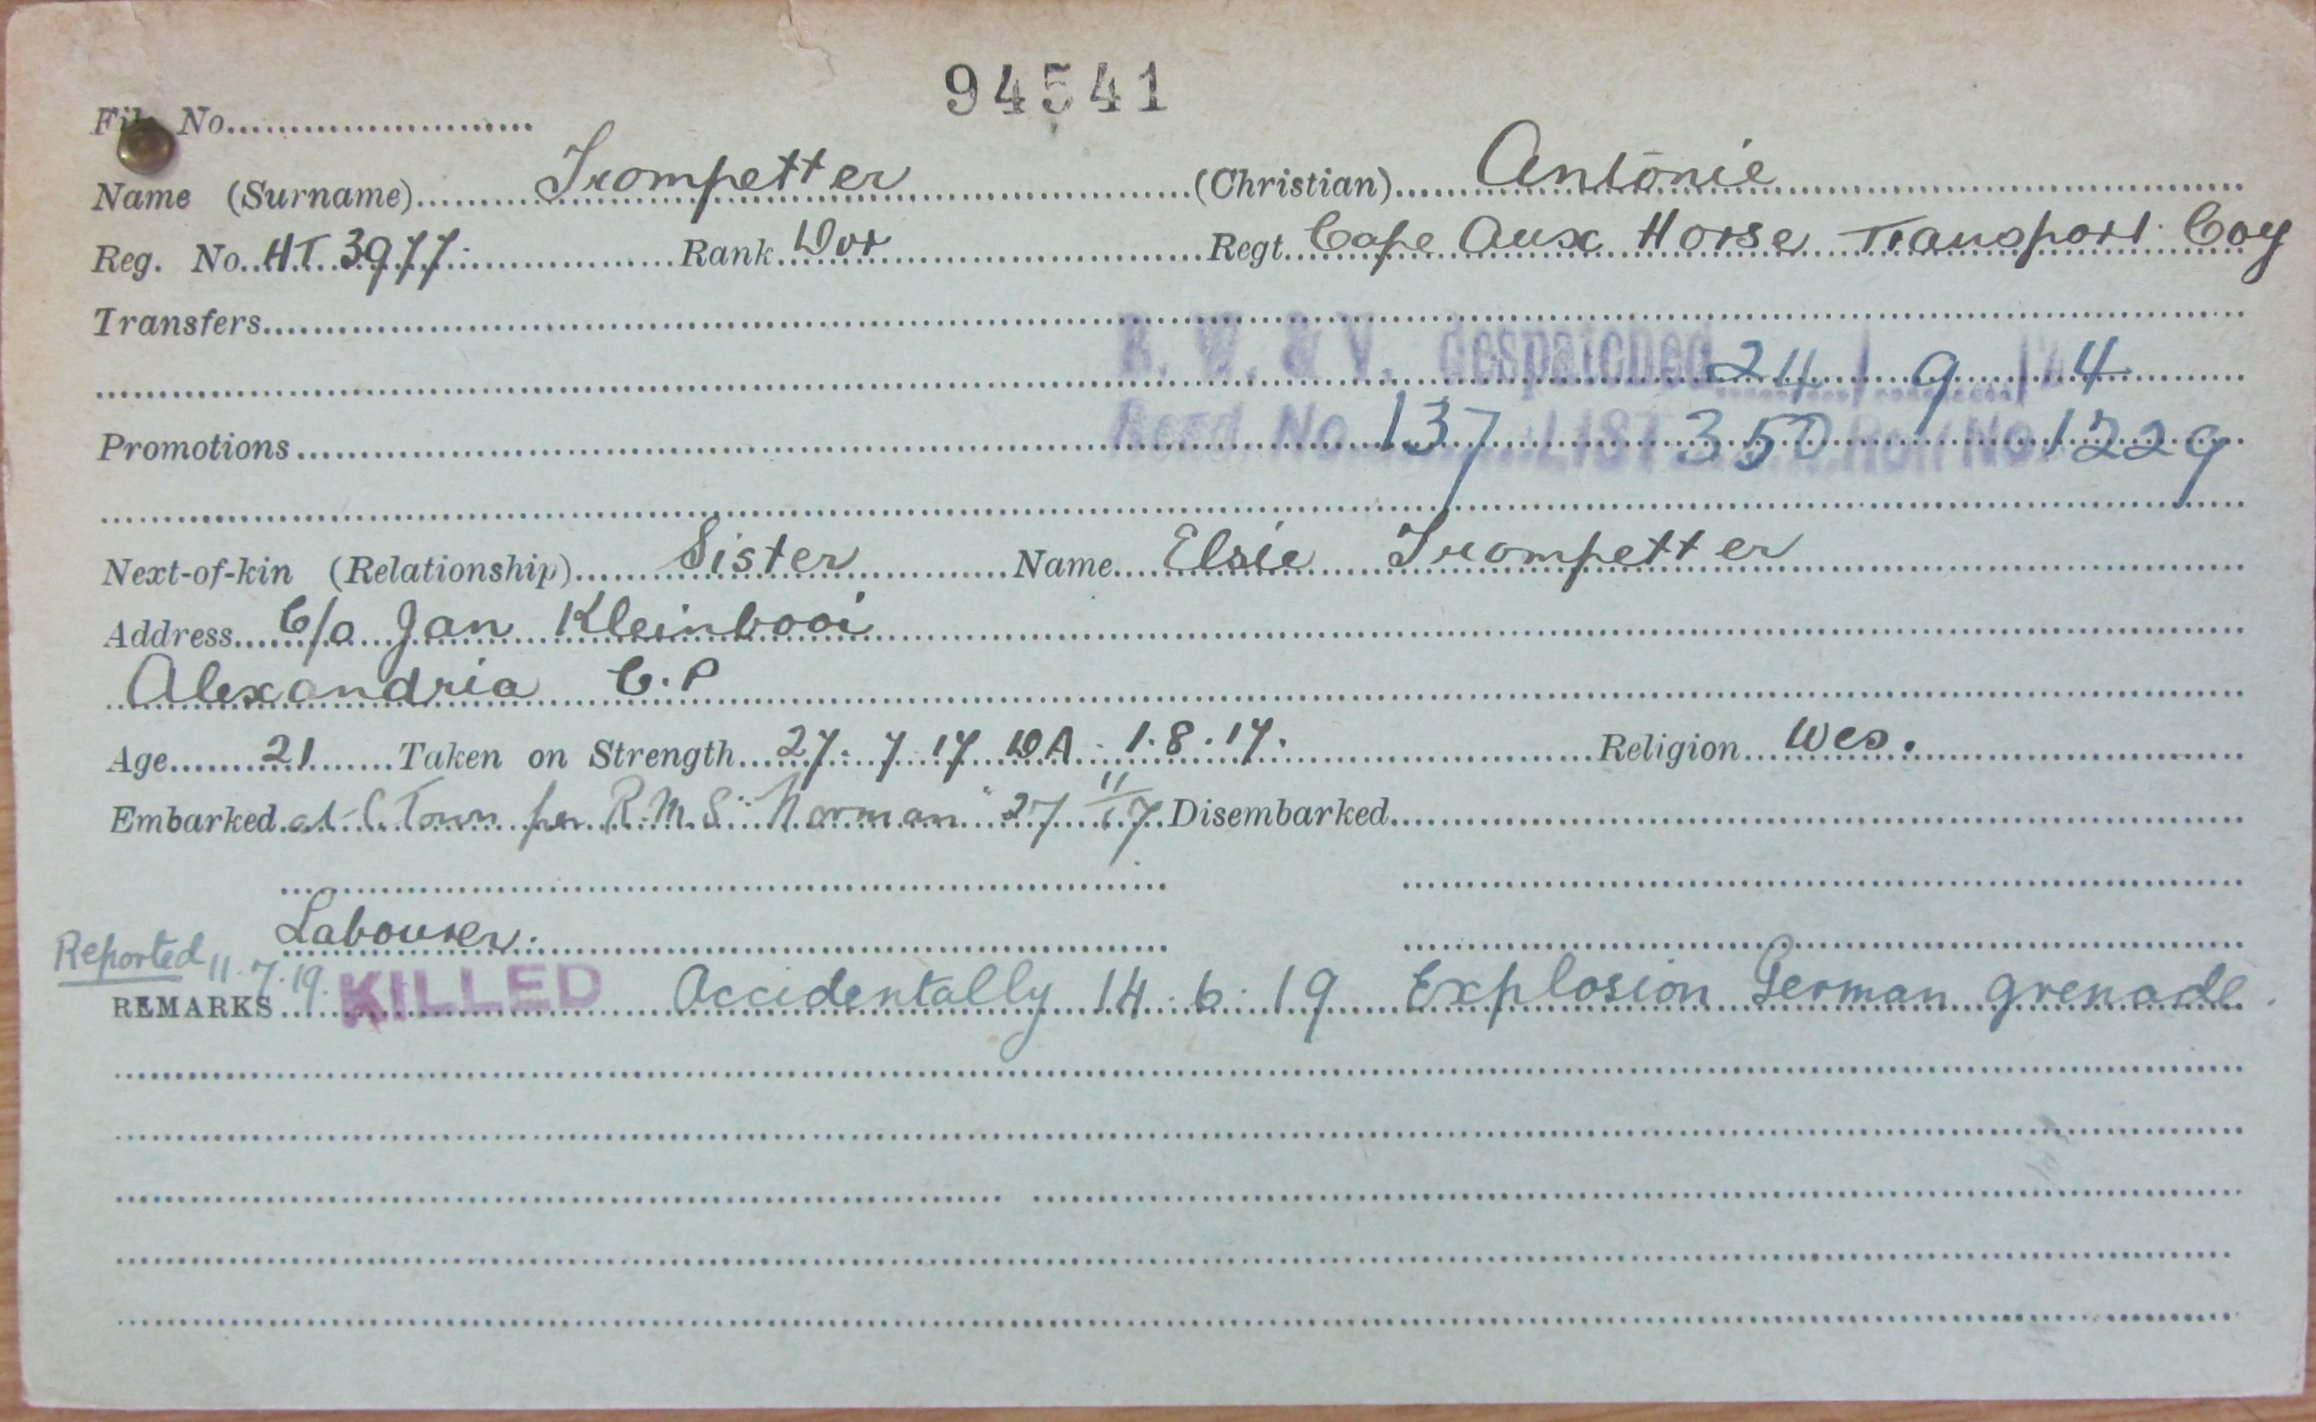 94541
File No.
Name (Surname) Trompetter (Christian) Antonie
Reg. No. HT 3977. Rank Dvr Regt. Cape Aux Horse Transport Coy
Transfers
B. W. & V. despatched 24 / 9 / 4
Recd. No. 137 LIST 350 Roll No. 1229
Promotions
Next-of-kin (Relationship) Sister Name Elsie Trompetter
Address C/o Jan Kleinbooi
Alexandria C.P
Age 21 Taken on Strength 27. 7. 17 DA. 1.8.17. Religion Wes.
Embarked at C. Town per R.M.S. "Norman" 27/11/17 Disembarked
Labourer.
Reported 11.7.19.
REMARKS KILLED Accidentally 14.6.19 Explosion German grenade.